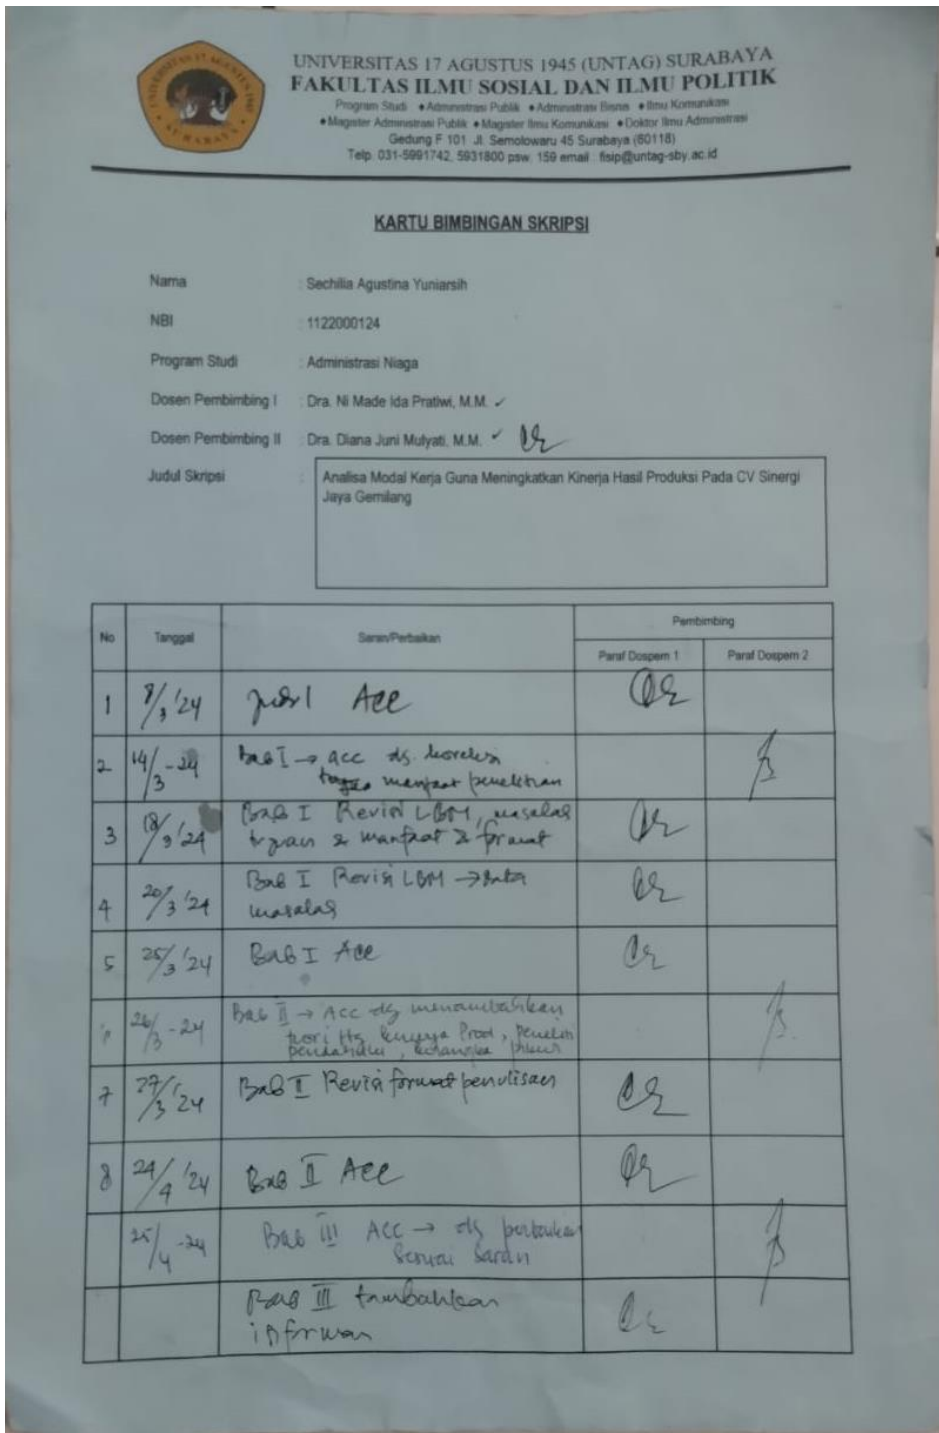 UNIVERSITAS 17 AGUSTUS 1945 (UNTAG) SURABAYA
FAKULTAS ILMU SOSIAL DAN ILMU POLITIK
Program Studi ♦Administrasi Publik ♦Administrasi Bisnis ♦Ilmu Komunikasi
♦Magister Administrasi Publik ♦Magister Ilmu Komunikasi ♦Doktor Ilmu Administrasi
Gedung F 101 Jl. Semolowaru 45 Surabaya (60118)
Telp. 031-5991742, 5931800 psw. 159 email : fisip@untag-sby.ac.id
KARTU BIMBINGAN SKRIPSI
Nama : Sechilia Agustina Yuniarsih
NBI : 1122000124
Program Studi : Administrasi Niaga
Dosen Pembimbing I : Dra. Ni Made Ida Pratiwi, M.M. ✓
Dosen Pembimbing II : Dra. Diana Juni Mulyati, M.M. ✓
Judul Skripsi : Analisa Modal Kerja Guna Meningkatkan Kinerja Hasil Produksi Pada CV Sinergi
Jaya Gemilang
No Tanggal Saran/Perbaikan Pembimbing
Paraf Dospem 1 Paraf Dospem 2
1 8/3 '24 Judul Acc
2 14/3 - 24 Bab I → acc dg. koreksi
manfaat penelitian
3 18/3 '24 Bab I Revisi LBM, masalah
tujuan & manfaat & format
4 20/3 '24 Bab I Revisi LBM → data
masalah
5 25/3 '24 Bab I Acc
26/3 - 24 Bab II → Acc dg menambahkan
teori ttg kinerja Prod, penelit
pendahulu, kerangka pikir
7 27/3 '24 Bab II Revisi format penulisan
8 24/4 '24 Bab II Acc
25/4 - 24 Bab III Acc → dg perbaikan
sesuai saran
Bab III tambahkan
informan